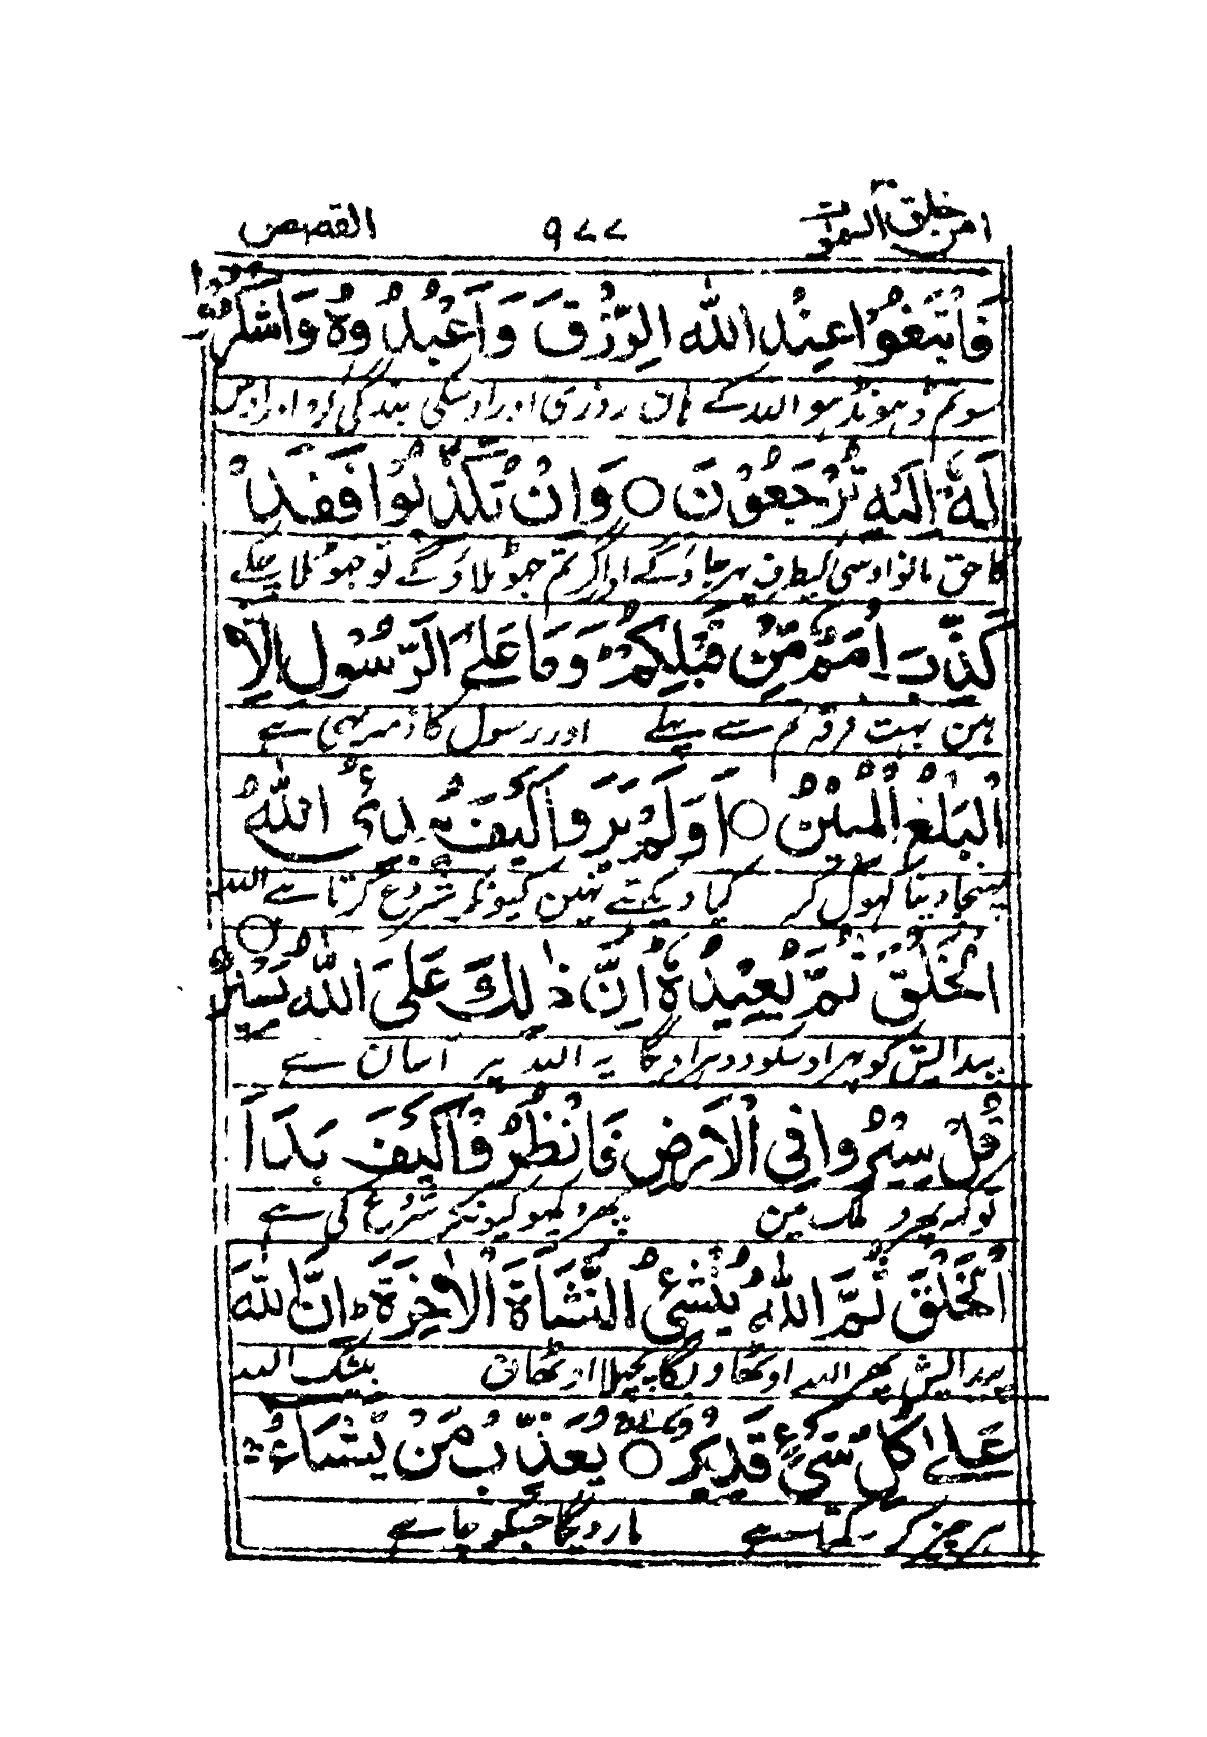 امن خلق السموات ۲۰ ۹۷۷ القصص
فَابْتَغُوْا عِنْدَ اللّٰهِ الرِّزْقَ وَاعْبُدُوْهُ وَاشْكُرُوْا
سو تم ڈہونڈہو اللہ کے ہان روزی اور اوسکی بندگی کرو اور اوس
لَهٗ اِلَيْهِ تُرْجَعُوْنَ ○ وَاِنْ تُكَذِّبُوْا فَقَدْ
کا حق مانو اوسی کیطرف پہر جاؤگے اور اگر تم جہوٹلاؤگے تو جہوٹلا چکے
كَذَّبَ اُمَمٌ مِّنْ قَبْلِكُمْ ؕ وَمَا عَلَى الرَّسُوْلِ اِلَّا
ہین بہت فرقہ تم سے پہلے اور رسول کا ذمہ یہی ہے
الْبَلٰغُ الْمُبِيْنُ ○ اَوَلَمْ يَرَوْا كَيْفَ يُبْدِئُ اللّٰهُ
پہنچا دینا کہول کر کیا دیکہتے نہین کیونکر شروع کرتا ہے اللہ
الْخَلْقَ ثُمَّ يُعِيْدُهٗ ؕ اِنَّ ذٰلِكَ عَلَى اللّٰهِ يَسِيْرٌ ○
پیدایش کو پہر اوسکو دوہراویگا یہ اللہ پر آسان ہے
قُلْ سِيْرُوْا فِي الْاَرْضِ فَانْظُرُوْا كَيْفَ بَدَاَ
تو کہہ پہرو ملک مین پہر دیکہو کیونکر شروع کی ہے
الْخَلْقَ ثُمَّ اللّٰهُ يُنْشِئُ النَّشْاَةَ الْاٰخِرَةَ ؕ اِنَّ اللّٰهَ
پیدایش پہر اللہ اوٹھاویگا پچہلا اوٹھان بیشک اللہ
عَلٰى كُلِّ شَيْءٍ قَدِيْرٌ ○ يُعَذِّبُ مَنْ يَّشَآءُ
ہر چیز کر سکتا ہے مار دیگا جسکو چاہے